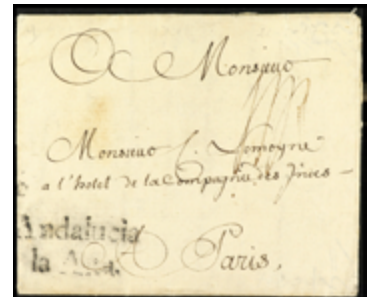 Monsieur
Monsieur
a l'hotel de la Compagnie des Indes
Andalucia
la
Paris.